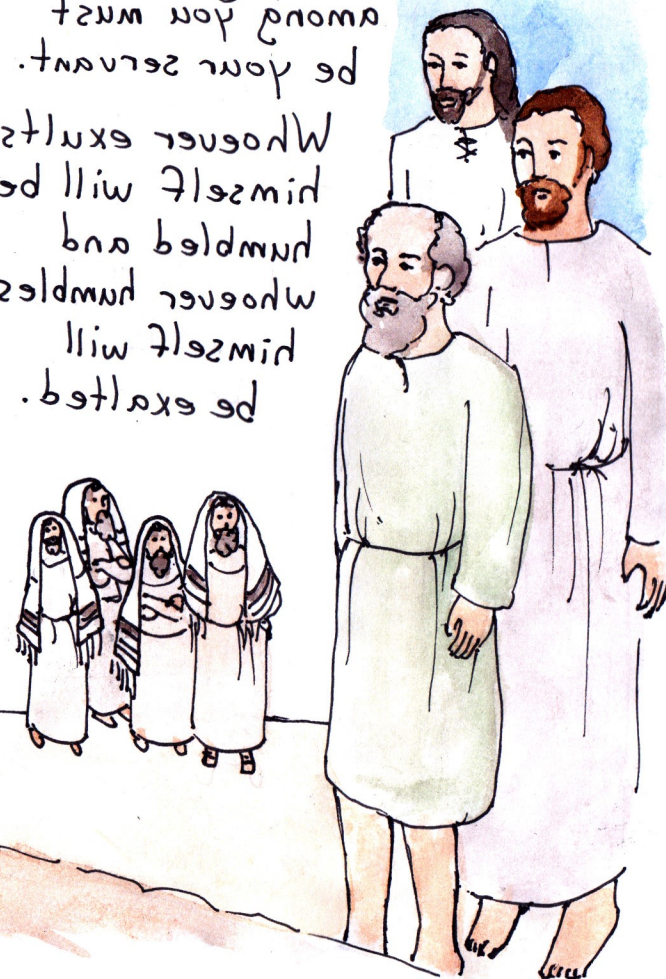 among you must
be your servant.
Whoever exults
himself will be
humbled and
whoever humbles
himself will
be exalted.